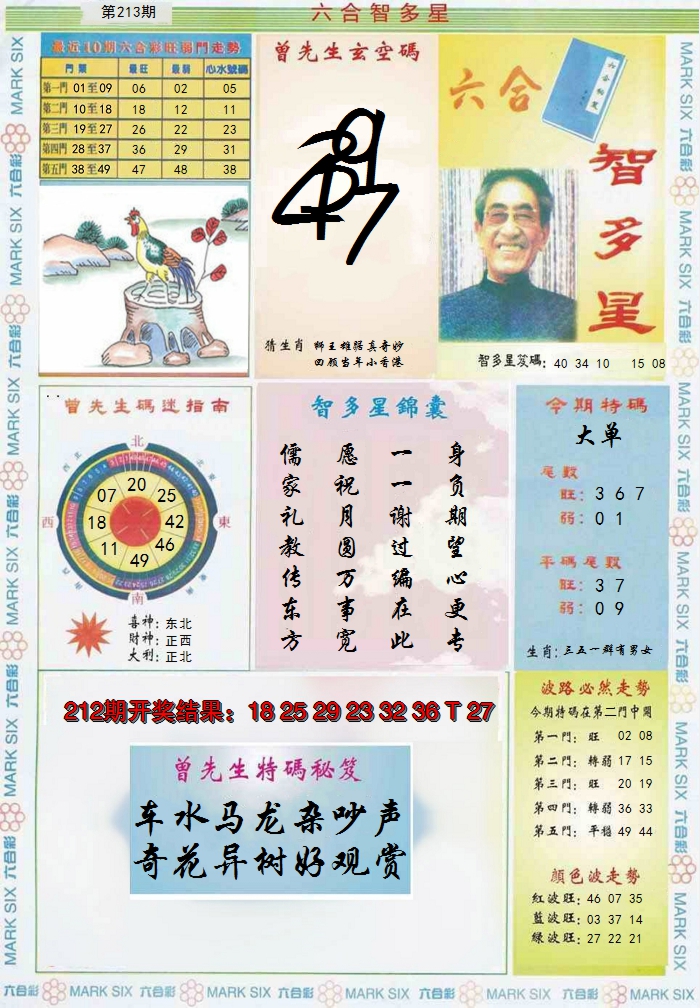 第213期
六合智多星
最近10期六合彩旺弱門走勢
門類 最旺 最弱 心水號碼
第一門 01至09 06 02 05
第二門 10至18 18 12 11
第三門 19至27 26 22 23
第四門 28至37 36 29 31
第五門 38至49 47 48 38
曾先生玄空碼
猜生肖 獅王雄踞真奇妙
回顧當年小香港
六合
六合秘笈
智多星
智多星笈碼: 40 34 10 15 08
曾先生碼迷指南
北
西北
東北
西
東
南
20
07
25
18
42
11
46
49
喜神: 东北
財神: 正西
大利: 正北
智多星錦囊
儒家礼教传东方
愿祝月圆万事宽
一一谢过编在此
身负期望心更专
今期特碼
大单
尾數
旺: 3 6 7
弱: 0 1
平碼尾數
旺: 3 7
弱: 0 9
生肖: 三五一群有男女
212期开奖结果: 18 25 29 23 32 36 T 27
曾先生特碼秘笈
车水马龙杂吵声
奇花异树好观赏
波路必然走勢
今期特碼在第二門中開
第一門: 旺 02 08
第二門: 轉弱 17 15
第三門: 旺 20 19
第四門: 轉弱 36 33
第五門: 平穩 49 44
顏色波走勢
紅波旺: 46 07 35
藍波旺: 03 37 14
綠波旺: 27 22 21
MARK SIX 六合彩 MARK SIX 六合彩 MARK SIX 六合彩 MARK SIX 六合彩 MARK SIX 六合彩 MARK SIX 六合彩
MARK SIX 六合彩 MARK SIX 六合彩 MARK SIX 六合彩 MARK SIX 六合彩 MARK SIX 六合彩 MARK SIX 六合彩
六合彩 MARK SIX 六合彩 MARK SIX 六合彩 MARK SIX 六合彩 MARK SIX 六合彩